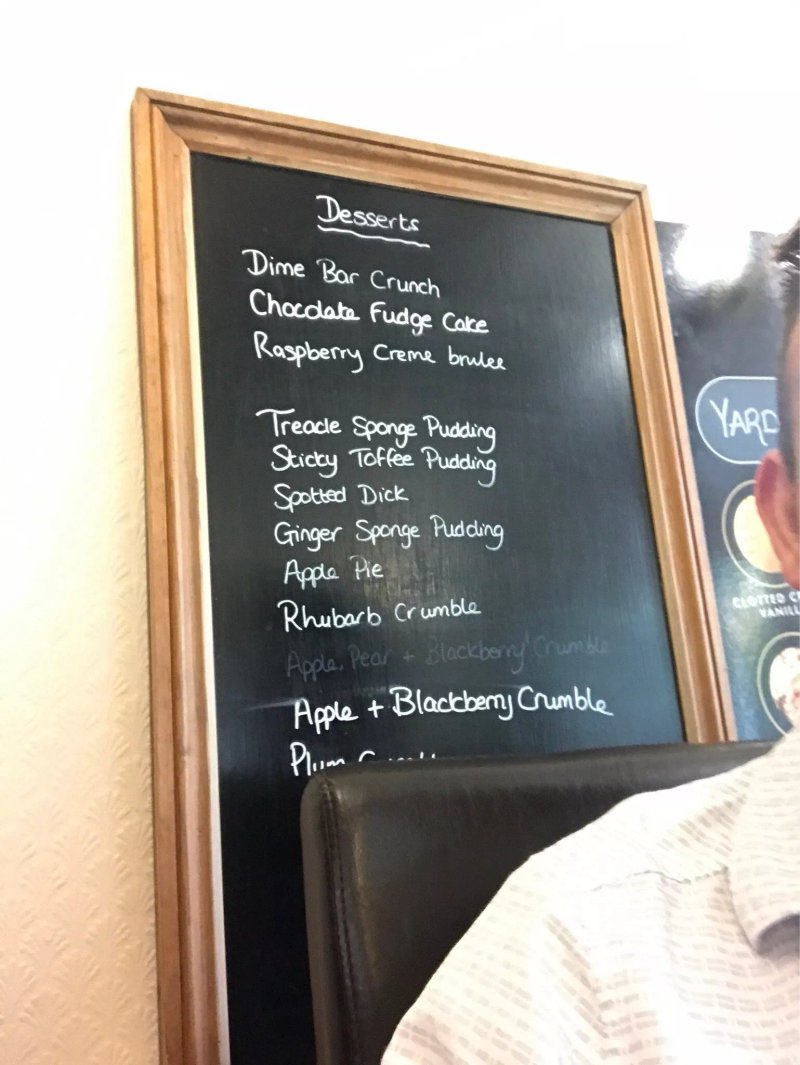 Desserts
Dime Bar Crunch
Chocolate Fudge Cake
Raspberry Creme brulee
Treacle Sponge Pudding
Sticky Toffee Pudding
Spotted Dick
Ginger Sponge Pudding
Apple Pie
Rhubarb Crumble
Apple, Pear + Blackberry Crumble
Apple + Blackberry Crumble
Plum
YARD
CLOTTED
VANILL